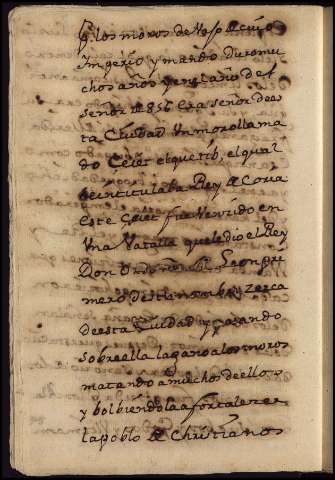 q los moros de a cuio
Ymperio y mando duro mu
chos años y en el año de el
señor de 856 Era señor de es
ta Ciudad Un moro llama
do Çeiet el quetib, el qual
se intitulaba Rey de Coria
este Çeiet fue Vençido en
Una Vatalla que le dio el Rey
Don Ordoño de Leon pri
mero deste nombre, zerca
de esta Ciudad y pasando
sobre ella la gano a los moros
matando a muchos de ellos
y bolbiendola a fortalezer
la poblo de Christianos